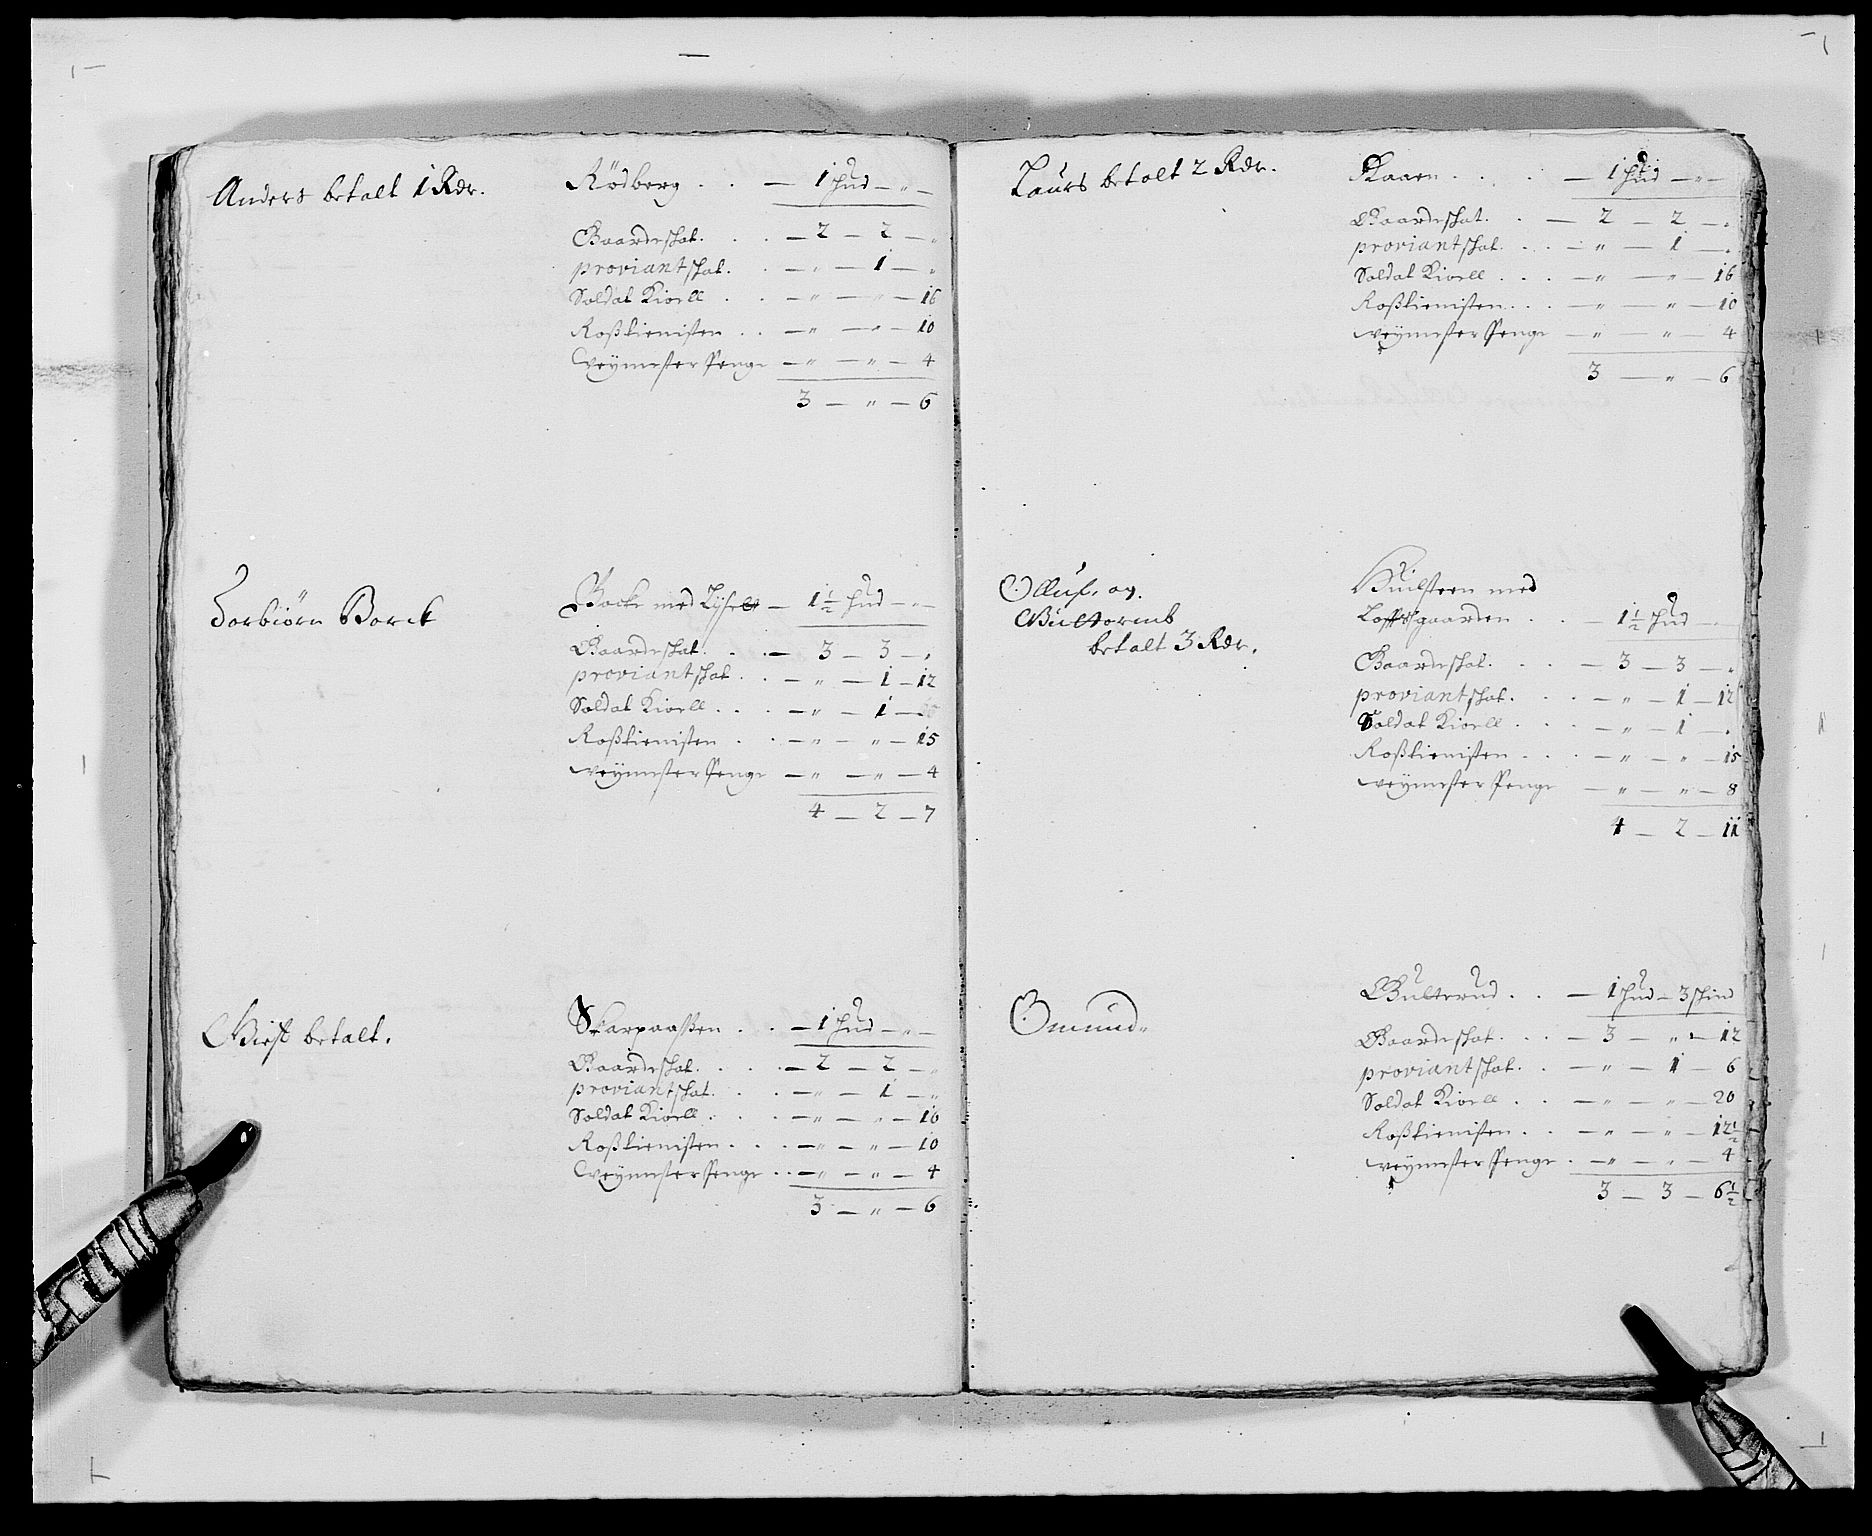 Anders betalt 1 Rdr.
Rödberg . . — 1 hud — „ —
Gaardeschat. . . — 2 — 2 — „
proviantschat. . — „ — 1 — „
Soldat Kioell . . — „ — „ — 16
Roßtienisten . . — „ — „ — 10
Weÿmester Penge — „ — „ — 4
3 — „ — 6
Torbiörn Borck
Bocke med — 1½ hud — „ —
Gaardeschat. . . — 3 — 3 — „
proviantschat . . — „ — 1 — 12
Soldat Kioell . . . — „ — 1 —
Roßtienisten . . — „ — „ — 15
Weÿmester Penge — „ — „ — 4
4 — 2 — 7
Giest betalt.
Skarpaaßen . . — 1 hud — „ —
Gaardeschat. . . . — 2 — 2 — „
proviantschat. . . — „ — 1 — „
Soldat Kioell . . . — „ — „ — 16
Roßtienisten . . . — „ — „ — 10
Weÿmester Penge . . — „ — „ — 4
3 — „ — 6
Laurs betalt 2 Rdr.
Skaaen . . . . — 1 hud — „ —
Gaardeschat. . — 2 — 2 — „
proviantschat. . . — „ — 1 — „
Soldat Kioell . . . — „ — „ — 16
Roßtienisten . . . — „ — „ — 10
Weÿmester Penge — „ — „ — 4
3 — „ — 6
Olluf. og.
betalt 3 Rdr.
Huilsteen med
Loffsgaarden . . — 1½ hud — „
Gaardeschat. . . — 3 — 3 — „
proviantschat. . . — „ — 1 — 12
Soldat Kioell . . . — „ — 1 — „
Roßtienisten . . . — „ — „ — 15
Weÿmester Penge — „ — „ — 8
4 — 2 — 11
Omund.
Gulterud . . — 1 hud — 3 skind
Gaardeschat. . . — 3 — „ — 12
proviantschat. . — „ — 1 — 6
Soldat Kioell . . — „ — „ — 20
Roßtienisten . . — „ — „ — 12½
Weÿmester Penge . — „ — „ — 4
3 — 3 — 6½